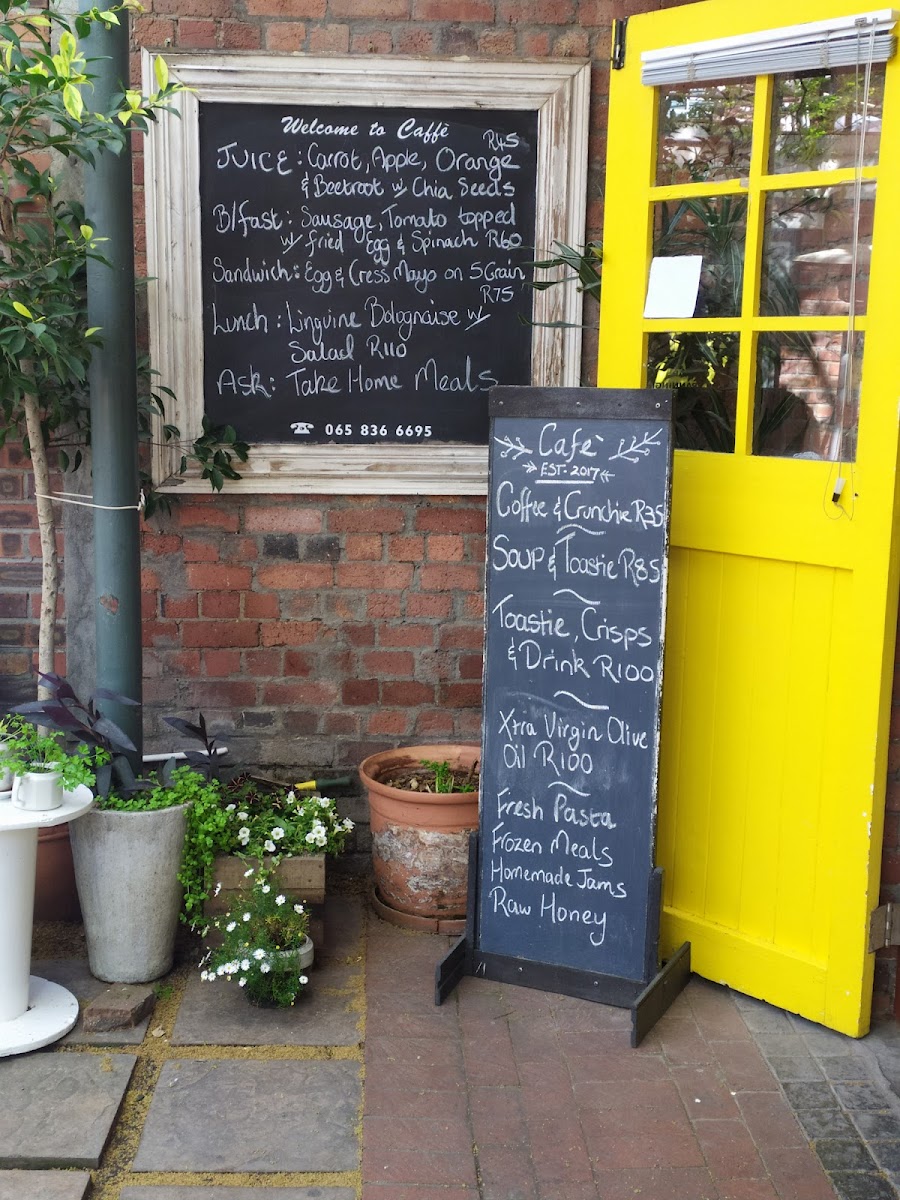 Welcome to Caffé
R45
JUICE: Carrot, Apple, Orange
& Beetroot w/ Chia Seeds
B/fast: Sausage, Tomato topped
w/ fried Egg & Spinach R60
Sandwich: Egg & Cress Mayo on 5 Grain
R75
Lunch: Linguine Bolognaise w/
Salad R110
Ask: Take Home Meals
☎ 065 836 6695
Cafè
EST. 2017
Coffee & Crunchie R35
SOUP & Toastie R85
Toastie, Crisps
& Drink R100
Xtra Virgin Olive
Oil R100
Fresh Pasta
Frozen Meals
Homemade Jams
Raw Honey